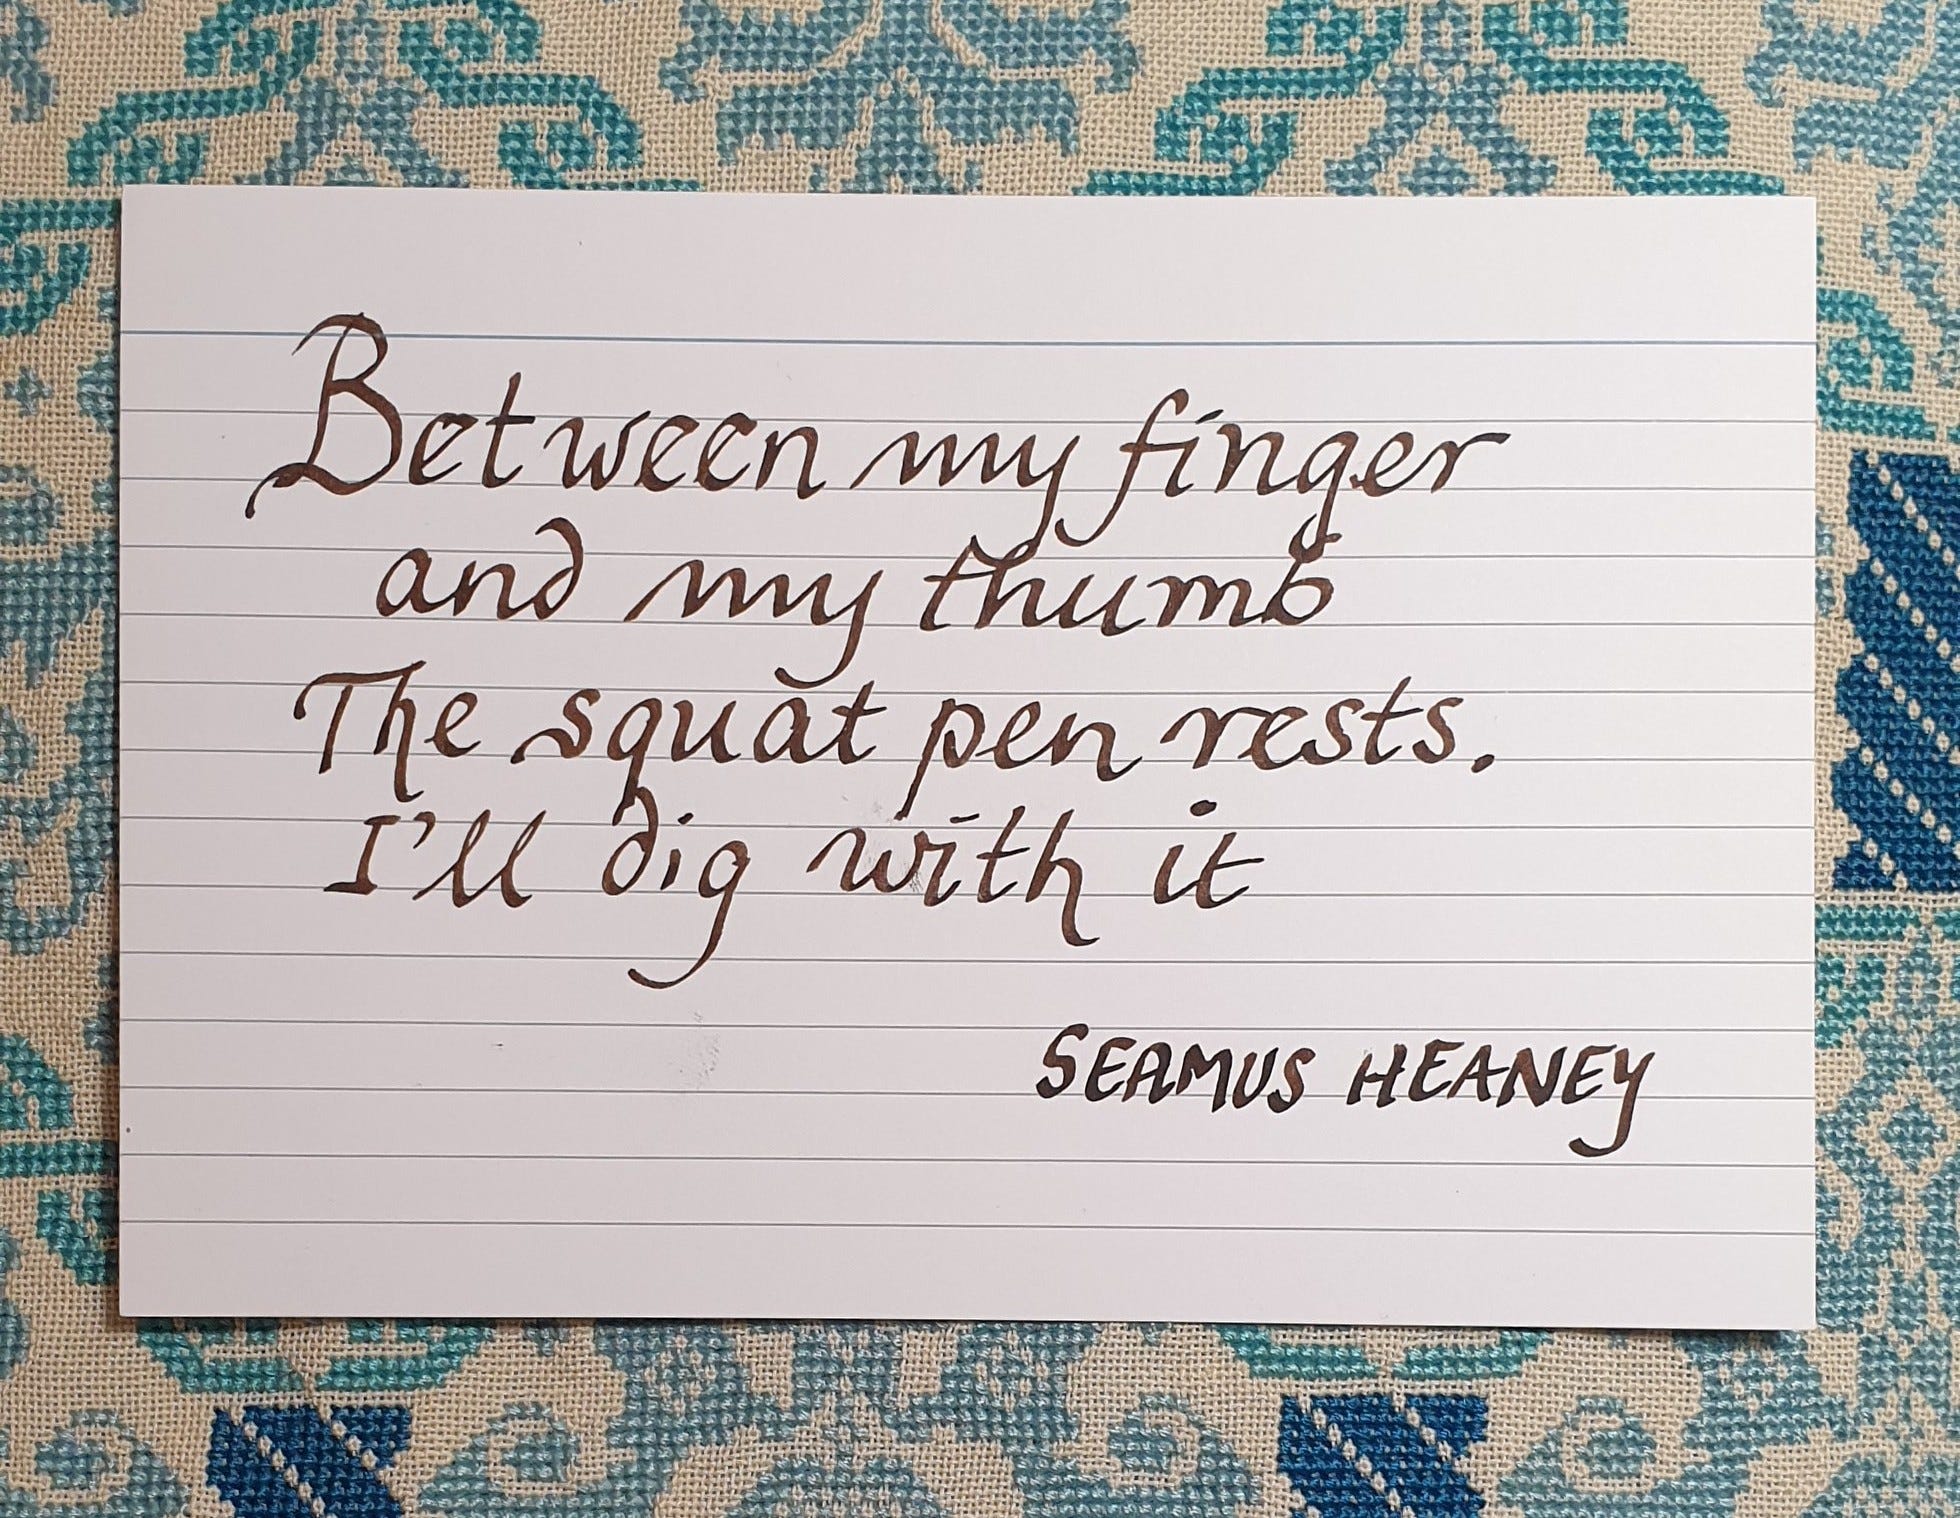 Between my finger
and my thumb
The squat pen rests.
I'll dig with it
SEAMUS HEANEY